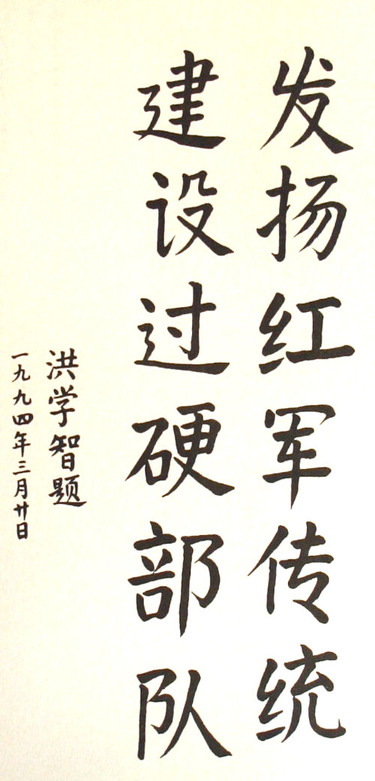 发扬红军传统
建设过硬部队
洪学智题
一九九四年三月廿日